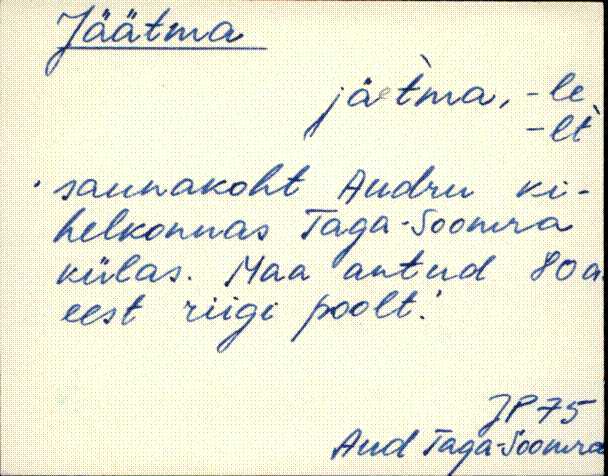 Jäätma
jäetma, -le
-lt
saunakoht Audru ki-
helkonnas Taga-Soomra
külas. Maa antud 80 a.
eest riigi poolt.
JP 75
Aud Taga-Soomra